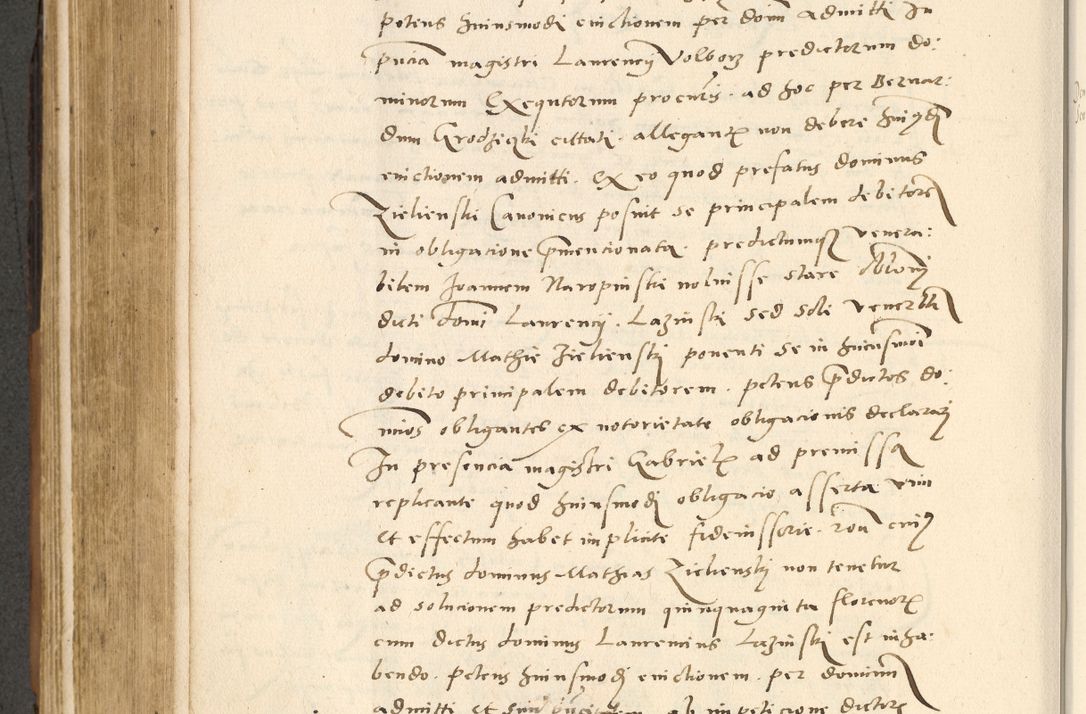 petens huiusmodi euictionem per dom admitti In
pncia magistri Laurency Volborz predictorum do:
minorum Exequtorum procuris. ad hoc per Bernar:
dum Grodziczki cittati. allegantis non debere huiusdi
euictionem admitti. Ex eo quod prefatus dominus
Zielienski Canonicus posuit se principalem debitorem
in obligacione pmencionata. predictumque venera:
bilem Joannem Naropinski noluisse stare oblony
dicti domi Laurency. Lazinski sed soli venerbli
domino Mathie Zielienski ponenti se in huiusmoi
debito principalem debitorem. petens pdictos do:
minos obligantes ex notorietate obligacionis declarari
In presencia magistri Gabrielis ad premissa
replicante quod huiusmodi obligacio asserta vim
et effectum habet implicite fideiussorie. roni cuius
pdictus dominus Mathias Zielienski non tenetur
ad solucionem predictorum quinquaginta florenorum
cum dictus dominus Laurencius Lazinski est in ha:
bendo. petens huiusmodi euictionem. per dominum
admitti et ab impeticione dictorum